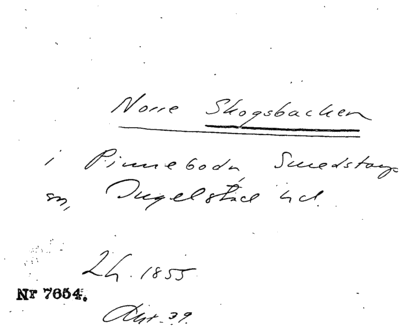 Norre Skogsbacken
i Pinneboda, Smedstorps
sn, Ingelstad hd.
2h. 1855
Nr 7654.
Akt 39.